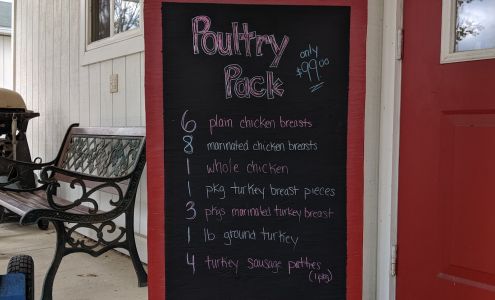 Poultry
Pack
only
$99.00
6 plain chicken breasts
8 marinated chicken breasts
1 whole chicken
1 pkg turkey breast pieces
3 pkgs marinated turkey breast
1 lb ground turkey
4 turkey sausage patties
(1pkg)